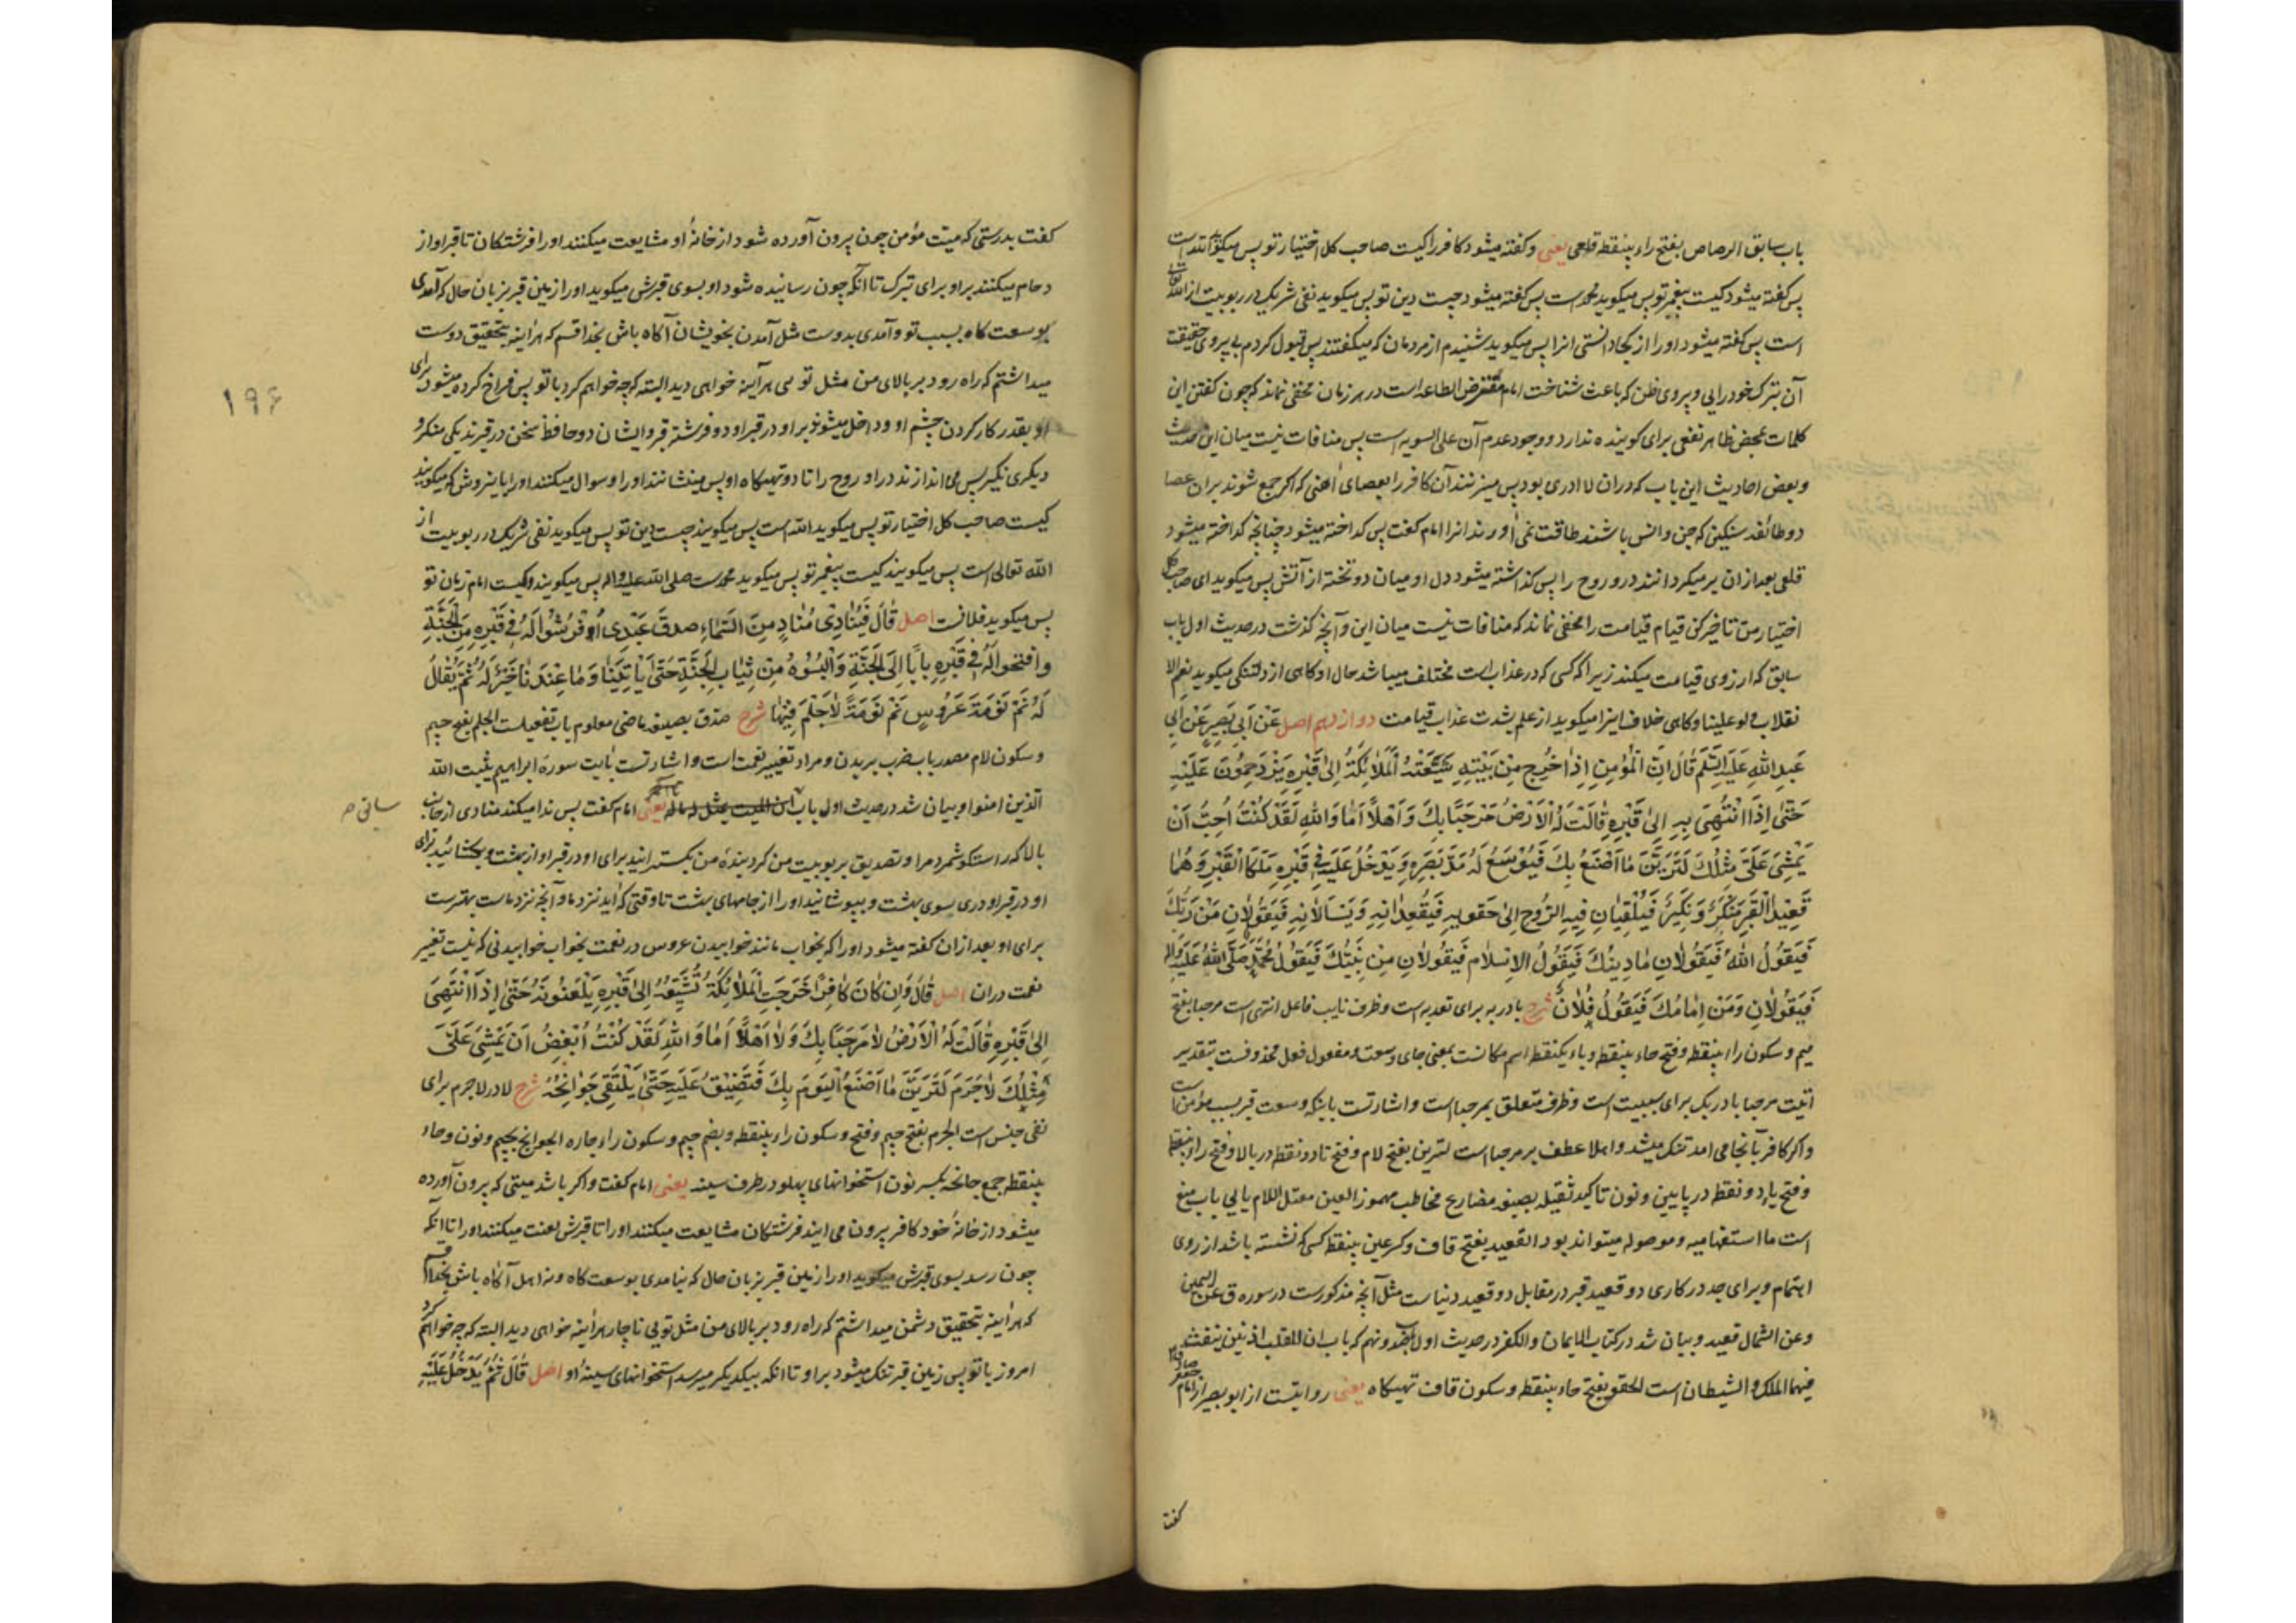 باب سابق الرصاص بفتح راء بینقطه قلعی یعنی و کفته میشود کافر را کیست صاحب کل اختیار تو پس میکوید الله است
پس کفته میشود کیست پیغمبر تو پس میکوید محمد است پس کفته میشود چیست دین تو پس میکوید نفی شریک در ربوبیت از الله تعالی
است پس کفته میشود او را از کجا دانستی انرا پس میکوید شنیدم از مردمان که میکفتند پس قبول کردم بی پیروی حقیقت
آن بترک خودرایی و پیروی ظن که باعث شناخت امام مفترض الطاعه است در هر زمان مخفی نماند که چون کفتن این
کلمات بمحض ظاهر نفعی برای کوینده ندارد و وجود عدم آن علی السویه است پس منافات نیست میان این حدیث
و بعض احادیث این باب که دران لا ادری بود پس میزنند آن کافر را بعصای آهنی که اکر جمع شوند بران عصا
دو طائفه سنکین که جن و انس باشند طاقت نمی اورند انرا امام کفت پس کداخته میشود چنانچه کداخته میشود
قلعی بعد ازان بر میکردانند درو روح را پس کذاشته میشود دل او میان دو تخته از آتش پس میکوید ای صاحب کل
اختیار من تاخیر کن قیام قیامت را مخفی نماند که منافات نیست میان این و آنچه کذشت در حدیث اول باب
سابق که ارزوی قیامت میکند زیرا که کسی که در عذاب است مختلف میباشد حال او کاهی از دلتنکی میکوید
و کاهی خلاف اینرا میکوید از علم بشدت عذاب قیامت دوازدهم اصل عَنْ اَبِی بَصِیرٍ عَنْ اَبِی
عَبدِ اللهِ عَلَیهِ السَّلَم قَالَ اِنَّ الْمُؤْمِنَ اِذَا خُرِجَ مِنْ بَیْتِهِ شَیَّعَتْهُ الْمَلَائِکَةُ اِلیٰ قَبْرِهِ یَزْدَحِمُونَ عَلَیْهِ
حَتّٰی اِذَا انْتُهِیَ بِهِ اِلیٰ قَبْرِهِ قَالَتْ لَهُ الْاَرْضُ مَرْحَبًا بِکَ وَ اَهْلًا اَمَا وَاللهِ لَقَدْ کُنْتُ اُحِبُّ اَنْ
یَمْشِیَ عَلَیَّ مِثْلُکَ لَتَرَیَنَّ مَا اَصْنَعُ بِکَ فَیُوْسَعُ لَهُ مَدَّ بَصَرِهِ وَ یَدْخُلُ عَلَیْهِ فِی قَبْرِهِ مَلَکَا الْقَبْرِ وَ هُمَا
قَعِیدَا الْقَبْرِ مُنْکَرٌ وَ نَکِیرٌ فَیُلْقِیَانِ فِیهِ الرُّوحَ اِلیٰ حَقْوَیهِ فَیُقْعِدَانِهِ وَ یَسْاَلَانِهِ فَیَقُولَانِ مَنْ رَبُّکَ
فَیَقُولُ اللهُ فَیَقُولَانِ مَا دِینُکَ فَیَقُولُ الاِسْلَام فَیَقُولَانِ مَنْ نَبِیُّکَ فَیَقُولُ مُحَمَّدٌ صَلَّی اللهُ عَلَیهِ وَاله
فَیَقُولَانِ وَ مَنْ اِمَامُکَ فَیَقُولُ فُلَانٌ شرح با در به برای تعدیه است و ظرف نایب فاعل انتهی است مرحبا بفتح
میم و سکون راء بینقطه و فتح حاء بینقطه و باء یکنقطه اسم مکانست بمعنی جای وسعت و مفعول فعل محذوفست بتقدیر
اتیت مرحبا با در بک برای سببیت است و ظرف متعلق بمرحبا است و اشارتست باینکه وسعت قبر بسبب مؤمن است
و اکر کافر آنجا می امد تنک میشد و اهلا عطف بر مرحبا است لترین بفتح لام و فتح تاء دو نقطه در بالا و فتح راء بینقطه
و فتح یاء دو نقطه در پایین و نون تاکید ثقیله بصیغه مضارع مخاطب مهموز العین معتل اللام یایی باب منع
است ما استفهامیه و موصوله میتواند بود القعید بفتح قاف و کسر عین بینقطه کسی که نشسته باشد از روی
اهتمام و برای جد در کاری دو قعید قبر در مقابل دو قعید دنیاست مثل آنچه مذکورست در سوره ق عن الیمین
و عن الشمال قعید و بیان شد در کتاب الایمان و الکفر در حدیث اول باب صد و نهم که باب ان للقلب اذنین ینفث
فیهما الملک و الشیطان است الحقو بفتح حاء بینقطه و سکون قاف تهیکاه یعنی روایتست از ابو بصیر از امام جعفر صادق
کفت
کفت بدرستی که میت مؤمن چون بیرون آورده شود از خانهٔ او مشایعت میکنند او را فرشتکان تا قبر او از
دحام میکنند بر او برای تبرک تا آنکه چون رسانیده شود او بسوی قبرش میکوید او را زمین قبر بزبان حال که آمدی
بوسعت کاه بسبب تو و آمدی بدوست مثل آمدن بخویشان آکاه باش بخدا قسم که هر اینه بتحقیق دوست
میداشتم که راه رود بر بالای من مثل تویی هر آینه خواهی دید البته که چه خواهم کرد با تو پس فراخ کرده میشود برای
او بقدر کار کردن چشم او و داخل میشوند بر او در قبر او دو فرشته قبر و ایشان دو حافظ سخن در قبرند یکی منکر و
دیکری نکیر پس می اندازند در او روح را تا دو تهیکاه او پس مینشانند او را و سوال میکنند او را باین روش که میکویند
کیست صاحب کل اختیار تو پس میکوید الله است پس میکویند چیست دین تو پس میکوید نفی شریک در ربوبیت از
الله تعالی است پس میکویند کیست پیغمبر تو پس میکوید محمدست صلی الله علیه واله پس میکویند و کیست امام زمان تو
پس میکوید فلانست اصل قَالَ فَیُنَادِی مُنَادٍ مِنَ السَّمَاءِ صَدَقَ عَبْدِی اُفْرُشُوا لَهُ فِی قَبْرِهِ مِنَ الْجَنَّةِ
وَ افْتَحُوا لَهُ فِی قَبْرِهِ بَابًا اِلَی الْجَنَّةِ وَ اَلْبِسُوهُ مِنْ ثِیَابِ الْجَنَّةِ حَتّٰی یَاْتِیَنَا وَ مَا عِنْدَنَا خَیْرٌ لَهُ ثُمَّ یُقَالُ
لَهُ نَمْ نَوْمَةَ عَرُوسٍ نَمْ نَوْمَةً لَا جَلْمَ فِیهَا شرح صدق بصیغه ماضی معلوم باب تفعیلست الجلم بفتح جیم
و سکون لام مصدر باب ضرب بریدن و مراد تغییر نعمت است و اشارتست بآیت سورهٔ ابراهیم یثبت الله
الذین امنوا و بیان شد در حدیث اول باب ان المیت یمثل له ماله تا آخر یعنی امام کفت پس ندا میکند منادی از جانب
ساقی ص
بالا که راستکو شمرد مرا و تصدیق بربوبیت من کرد بندهٔ من بکسترانید برای او در قبر او از بهشت و بکشائید برای
او در قبر او دری بسوی بهشت و بپوشانید او را از جامهای بهشت تا وقتی که اید نزد ما و آنچه نزد ماست بهترست
برای او بعد ازان کفته میشود او را که بخواب مانند خوابیدن عروس در نعمت بخواب خوابیدنی که نیست تغییر
نعمت دران اصل قَالَ وَ اِنْ کَانَ کَافِرًا خَرَجَتِ الْمَلَائِکَةُ تُشَیِّعُهُ اِلیٰ قَبْرِهِ یَلْعَنُونَهُ حَتّٰی اِذَا انْتَهیٰ
اِلیٰ قَبْرِهِ قَالَتْ لَهُ الْاَرْضُ لَا مَرْحَبًا بِکَ وَ لَا اَهْلًا اَمَا وَ اللهِ لَقَدْ کُنْتُ اُبْغِضُ اَنْ یَمْشِیَ عَلَیَّ
مِثْلُکَ لَا جَرَمَ لَتَرَیَنَّ مَا اَصْنَعُ الْیَوْمَ بِکَ فَتَضِیْقُ عَلَیهِ حَتّٰی یَلْتَقِی جَوَانِحُهُ شرح لا در لا جرم برای
نفی جنس است الجرم بفتح جیم و فتح و سکون راء بینقطه و بضم جیم و سکون راء چاره الجوانح بجیم و نون و حاء
بینقطه جمع جانحه بکسر نون استخوانهای پهلو در طرف سینه یعنی امام کفت و اکر باشد میتی که بیرون آورده
میشود از خانهٔ خود کافر بیرون می ایند فرشتکان مشایعت میکنند او را تا قبرش لعنت میکنند او را تا انکه
چون رسد بسوی قبرش میکوید او را زمین قبر بزبان حال که نیامدی بوسعت کاه و نه اهل آکاه باش بخدا قسم
که هر اینه بتحقیق دشمن میداشتم که راه رود بر بالای من مثل تویی ناچار هر اینه خواهی دید البته که چه خواهم کرد
امروز با تو پس زمین قبر تنک میشود بر او تا انکه بیکدیکر میرسد استخوانهای سینهٔ او اصل قَالَ ثُمَّ یَدْخُلُ عَلَیْهِ
۱۹۶